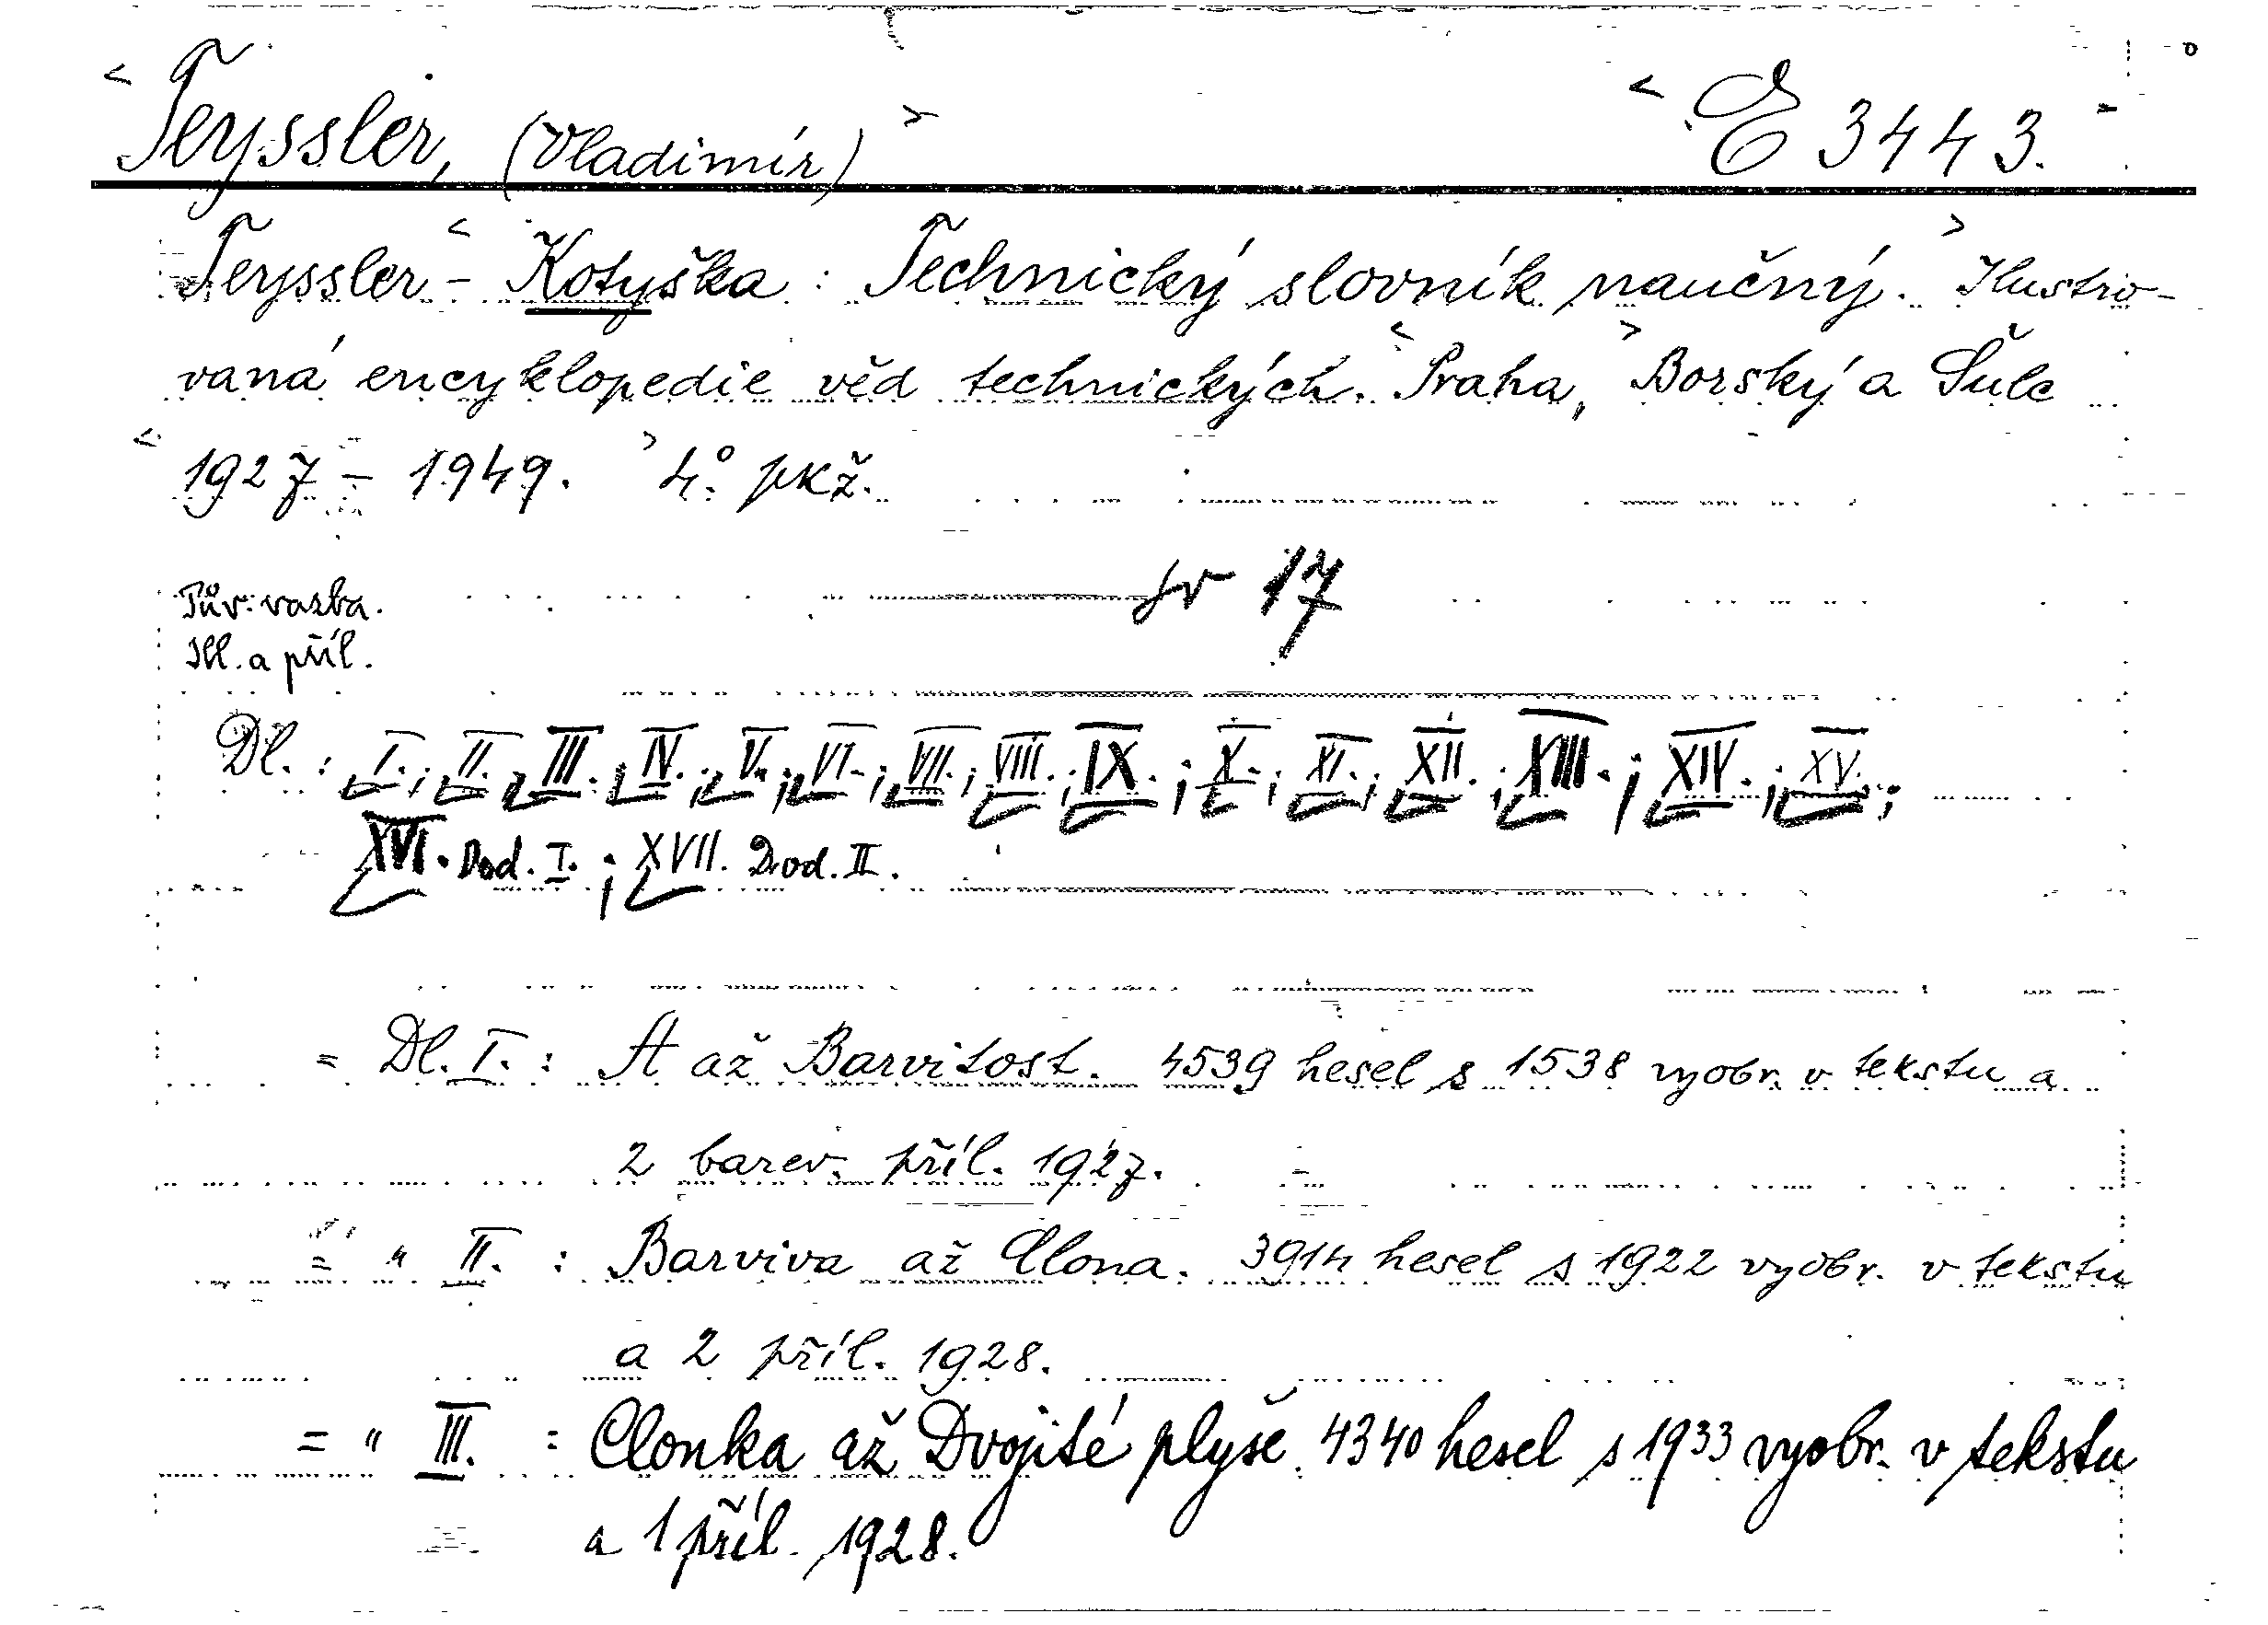 Teyssler, (Vladimír) E 3443.
Teyssler - Kotyška : Technický slovník naučný. Ilustro-
vaná encyklopedie věd technických. Praha, Borský a Šulc
1927 - 1949. 4° pkž.
sv 17
Pův. vazba.
Ill. a příl.
Dl. : I. ; II. ; III. ; IV. ; V. ; VI. ; VII. ; VIII. ; IX. ; X. ; XI. ; XII. ; XIII. ; XIV. ; XV. ;
XVI. Dod. I. ; XVII. Dod. II.
= Dl. I. : A až Barvitost. 4539 hesel s 1538 vyobr. v tekstu a
2 barev. příl. 1927.
= " II. : Barviva až Clona. 3914 hesel s 1922 vyobr. v tekstu
a 2 příl. 1928.
= " III. : Clonka až Dvojité plyše. 4340 hesel s 1933 vyobr. v tekstu
a 1 příl. 1928.